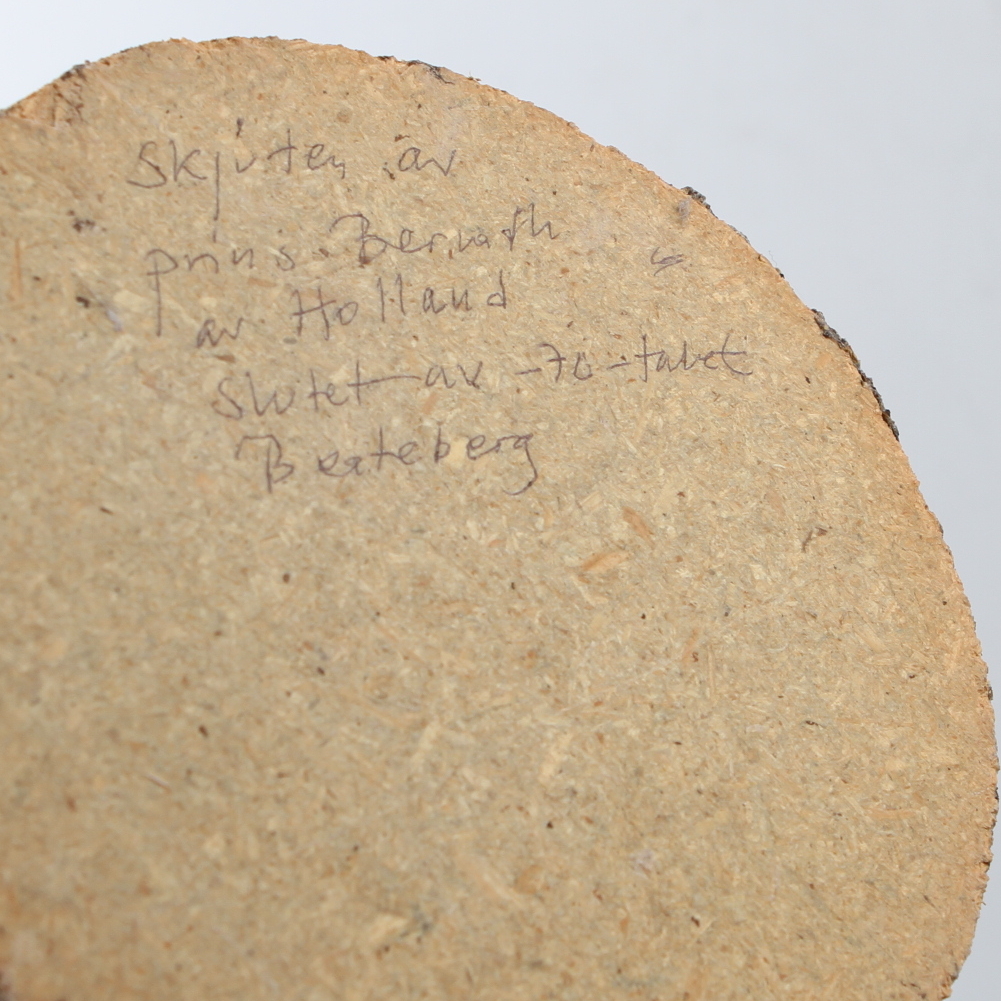 Skjuten av
prins Bernath
av Holland
Slutet av -70-talet
Beateberg